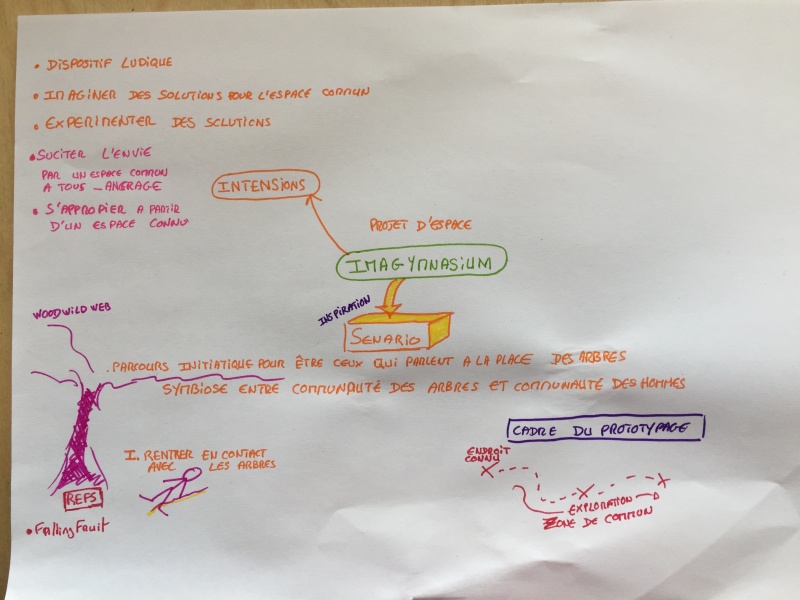 • DISPOSITIF LUDIQUE
• IMAGINER DES SOLUTIONS POUR L'ESPACE COMMUN
• EXPERIMENTER DES SOLUTIONS
• SUCITER L'ENVIE
PAR UN ESPACE COMMUN
A TOUS _ANCRAGE
• S'APPROPIER A PARTIR
D'UN ESPACE CONNU
INTENSIONS
PROJET D'ESPACE
IMAGYMNASIUM
INSPIRATION
SENARIO
WOODWILDWEB
. PARCOURS INITIATIQUE POUR ÊTRE CEUX QUI PARLENT A LA PLACE DES ARBRES
SYMBIOSE ENTRE COMMUNAUTÉ DES ARBRES ET COMMUNAUTÉ DES HOMMES
CADRE DU PROTOTYPAGE
I. RENTRER EN CONTACT
AVEC LES ARBRES
ENDROIT
CONNU
REFS
EXPLORATION
ZONE DE COMMUN
• Falling Fruit